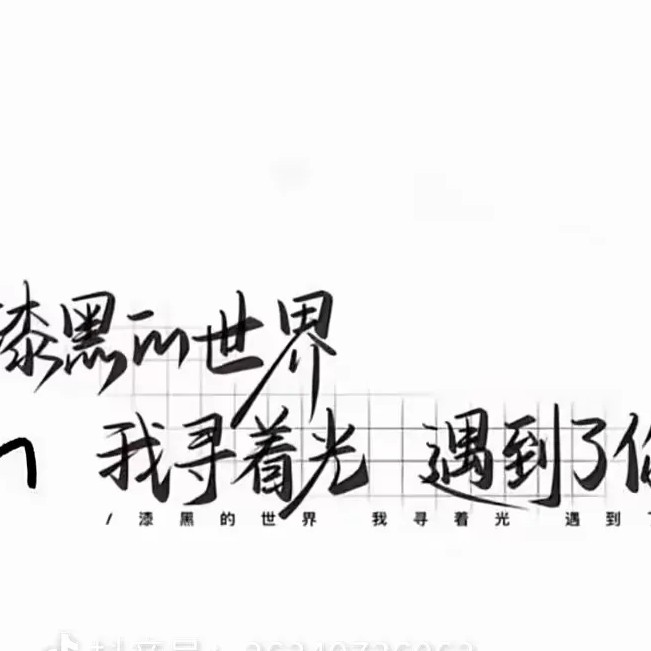 漆黑的世界
我寻着光 遇到了你
/ 漆黑的世界 我寻着光 遇到了